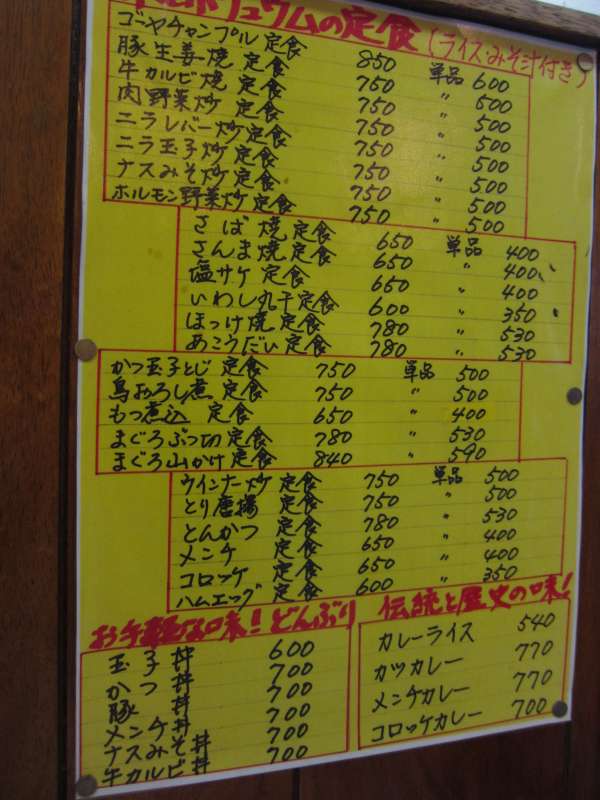 ボリュウムの定食(ライスみそ汁付き)
ゴーヤチャンプル定食 850 単品 600
豚生姜焼定食 750 〃 500
牛カルビ焼定食 750 〃 500
肉野菜炒定食 750 〃 500
ニラレバー炒定食 750 〃 500
ニラ玉子炒定食 750 〃 500
ナスみそ炒定食 750 〃 500
ホルモン野菜炒定食 750 〃 500
さば焼定食 650 単品 400
さんま焼定食 650 〃 400
塩サケ定食 650 〃 400
いわし丸干定食 600 〃 350
ほっけ焼定食 780 〃 530
あこうだい定食 780 〃 530
かつ玉子とじ定食 750 単品 500
鳥おろし煮定食 750 〃 500
もつ煮込定食 650 〃 400
まぐろぶつ切定食 780 〃 530
まぐろ山かけ定食 840 〃 590
ウインナー炒定食 750 単品 500
とり唐揚定食 750 〃 500
とんかつ定食 780 〃 530
メンチ定食 650 〃 400
コロッケ定食 650 〃 400
ハムエッグ定食 600 〃 350
お手軽な味!どんぶり
玉子丼 600
かつ丼 700
豚丼 700
メンチ丼 700
ナスみそ丼 700
牛カルビ丼 700
伝統と歴史の味!
カレーライス 540
カツカレー 770
メンチカレー 770
コロッケカレー 700